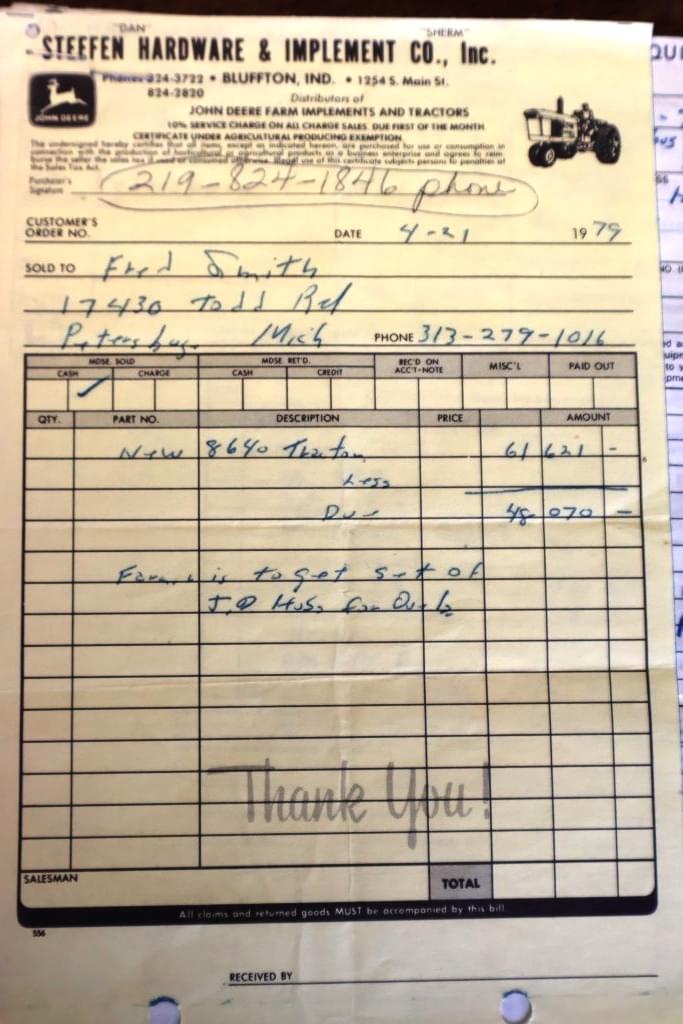 "DAN" "SHERM"
STEFFEN HARDWARE & IMPLEMENT CO., Inc.
Phones 824-3722 • BLUFFTON, IND. • 1254 S. Main St.
824-2820
Distributors of
JOHN DEERE FARM IMPLEMENTS AND TRACTORS
JOHN DEERE
10% SERVICE CHARGE ON ALL CHARGE SALES DUE FIRST OF THE MONTH
CERTIFICATE UNDER AGRICULTURAL PRODUCING EXEMPTION
The undersigned hereby certifies that all items, except as indicated hereon, are purchased for use or consumption in
connection with the production of as a business enterprise and agrees to reim
burse the seller the sales tax if used or consumed otherwise. Illegal use of this certificate subjects persons to penalties of
the Sales Tax Act.
Purchaser's
Signature
219-824-1846 phone
CUSTOMER'S
ORDER NO. DATE 4-21 1979
SOLD TO Fred Smith
17430 Todd Rd
Petersburg Mich PHONE 313-279-1016
MDSE. SOLD MDSE. RET'D. REC'D ON ACC'T-NOTE MISC'L PAID OUT
CASH CHARGE CASH CREDIT
QTY. PART NO. DESCRIPTION PRICE AMOUNT
New 8640 Tractor 61 621 -
Less
Due 48 070 -
Farmer is to get set of
J.D Hubs for Duals
Thank You!
SALESMAN TOTAL
All claims and returned goods MUST be accompanied by this bill
556
RECEIVED BY